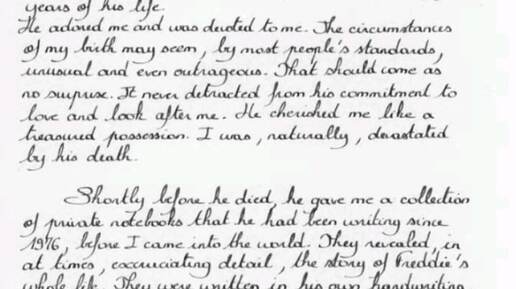 years of his life.
He adored me and was devoted to me. The circumstances
of my birth may seem, by most people's standards,
unusual and even outrageous. That should come as
no surprise. It never detracted from his commitment to
love and look after me. He cherished me like a
treasured possession. I was, naturally, devastated
by his death.
Shortly before he died, he gave me a collection
of private notebooks that he had been writing since
1976, before I came into the world. They revealed, in
at times, excruciating detail, the story of Freddie's
whole life. They were written in his own handwriting